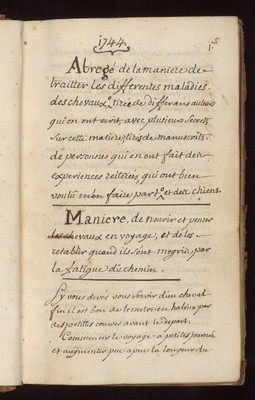 1744
Abregé de la maniere de
traitter les differentes maladies
des chevaux, tirée de differans auteurs
qui en ont ecrit, avec plusieurs secrets
sur cette matiere, tirés de manuscrits
de personnes qui en ont fait des
experiences reiterées, qui ont bien
voulu m'en faire part, et des chiens.
Maniere, de nourir et penser
les chevaux en voyage, et de les
retablir quand ils sont megris par
la fatigue du chemin.
Sy vous devés vous servir d'un cheval
fin il est bon de le mettre en haleine par
des petittes courses avant le depart.
Commencer le voyage a petites journées
et augmenter peu a peu la longeur du